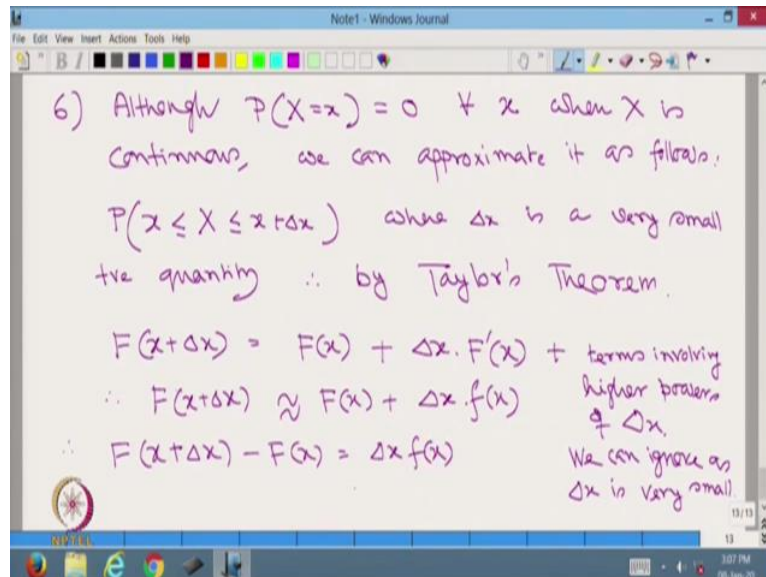 Note1 - Windows Journal
File Edit View Insert Actions Tools Help
6) Although P(X=x) = 0 ∀ x when X is
continuous, we can approximate it as follows.
P(x ≤ X ≤ x+Δx) where Δx is a very small
+ve quantity ∴ by Taylor's Theorem.
F(x+Δx) = F(x) + Δx. F'(x) + terms involving
higher powers
of Δx.
∴ F(x+Δx) ≈ F(x) + Δx.f(x)
∴ F(x+Δx) - F(x) = Δx f(x)
We can ignore as
Δx is very small.
NPTEL
13/13
13
3:07 PM